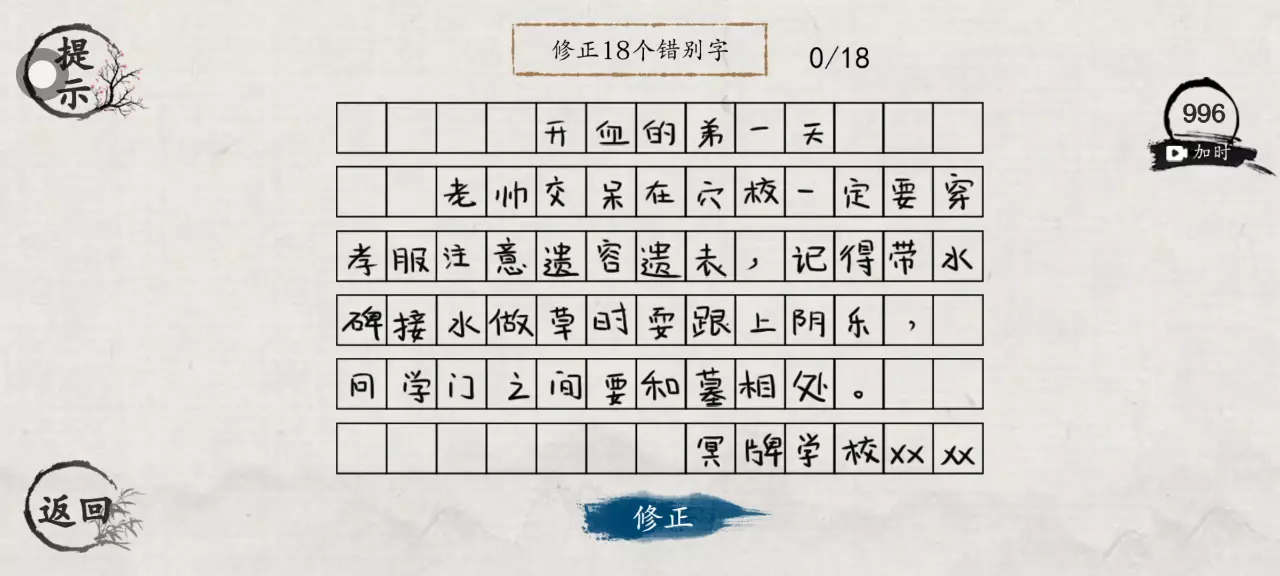 提示
修正18个错别字
0/18
996
加时
开血的弟一天
老帅交呆在穴校一定要穿
孝服注意遗容遗表，记得带水
碑接水做草时耍跟上阴乐，
冋学门之间要和墓相处。
冥牌学校xxxx
返回
修正